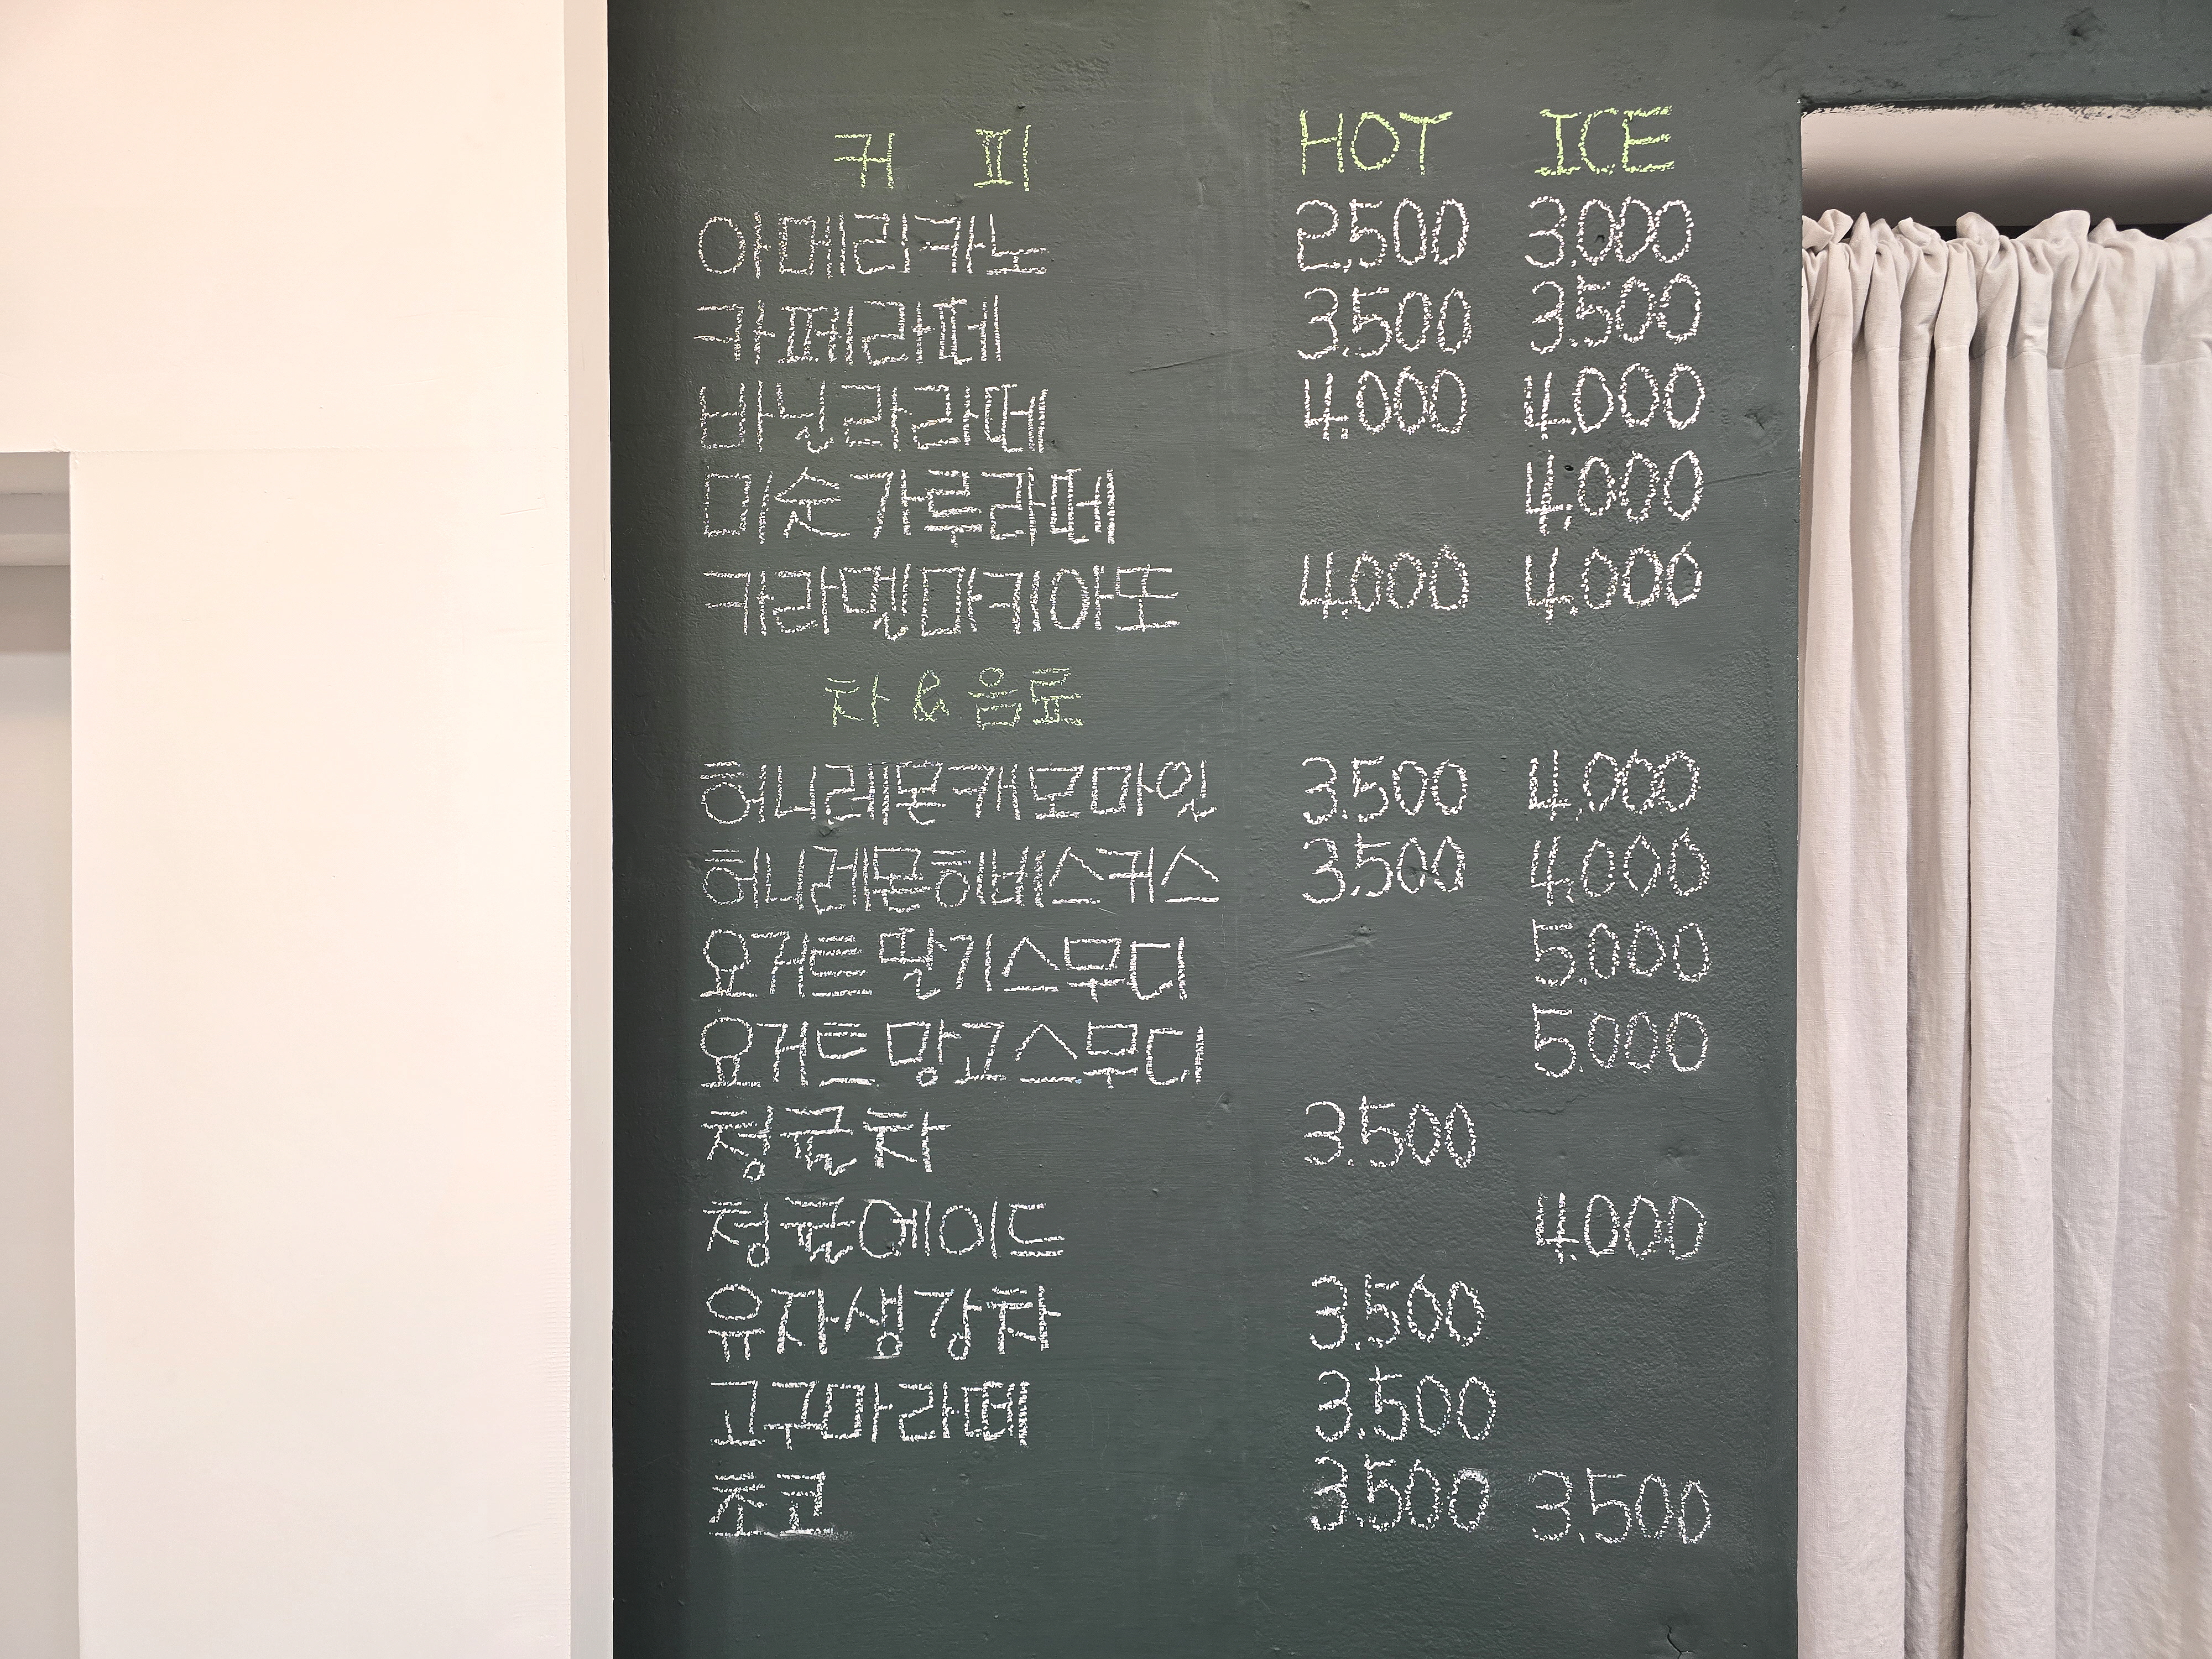 커 피 HOT ICE
아메리카노 2,500 3,000
카페라떼 3,500 3,500
바닐라라떼 4,000 4,000
미숫가루라떼 4,000
카라멜마키아또 4,000 4,000
차 & 음료
허니레몬캐모마일 3,500 4,000
허니레몬히비스커스 3,500 4,000
요거트딸기스무디 5,000
요거트망고스무디 5,000
청귤차 3,500
청귤에이드 4,000
유자생강차 3,500
고구마라떼 3,500
초코 3,500 3,500